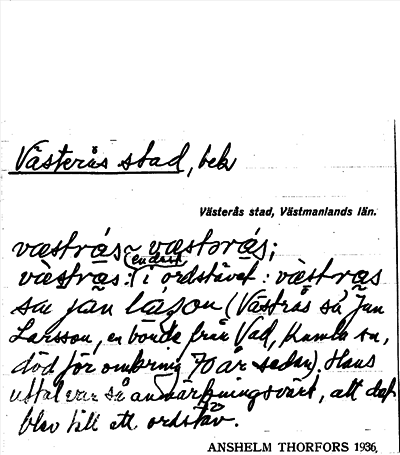 Västerås stad, bebr
Västerås stad, Västmanlands län.
væstrås ~ væstərås;
endast
væstras: i ordstävet: væstras
sa jan lason (Västrås sa' Jan
Larsson, en bonde från Vad, Kumla sn,
död för omkring 70 år sedan). Hans
uttal var så anmärkningsvärt, att det
blev till ett ordstäv.
ANSHELM THORFORS 1936,